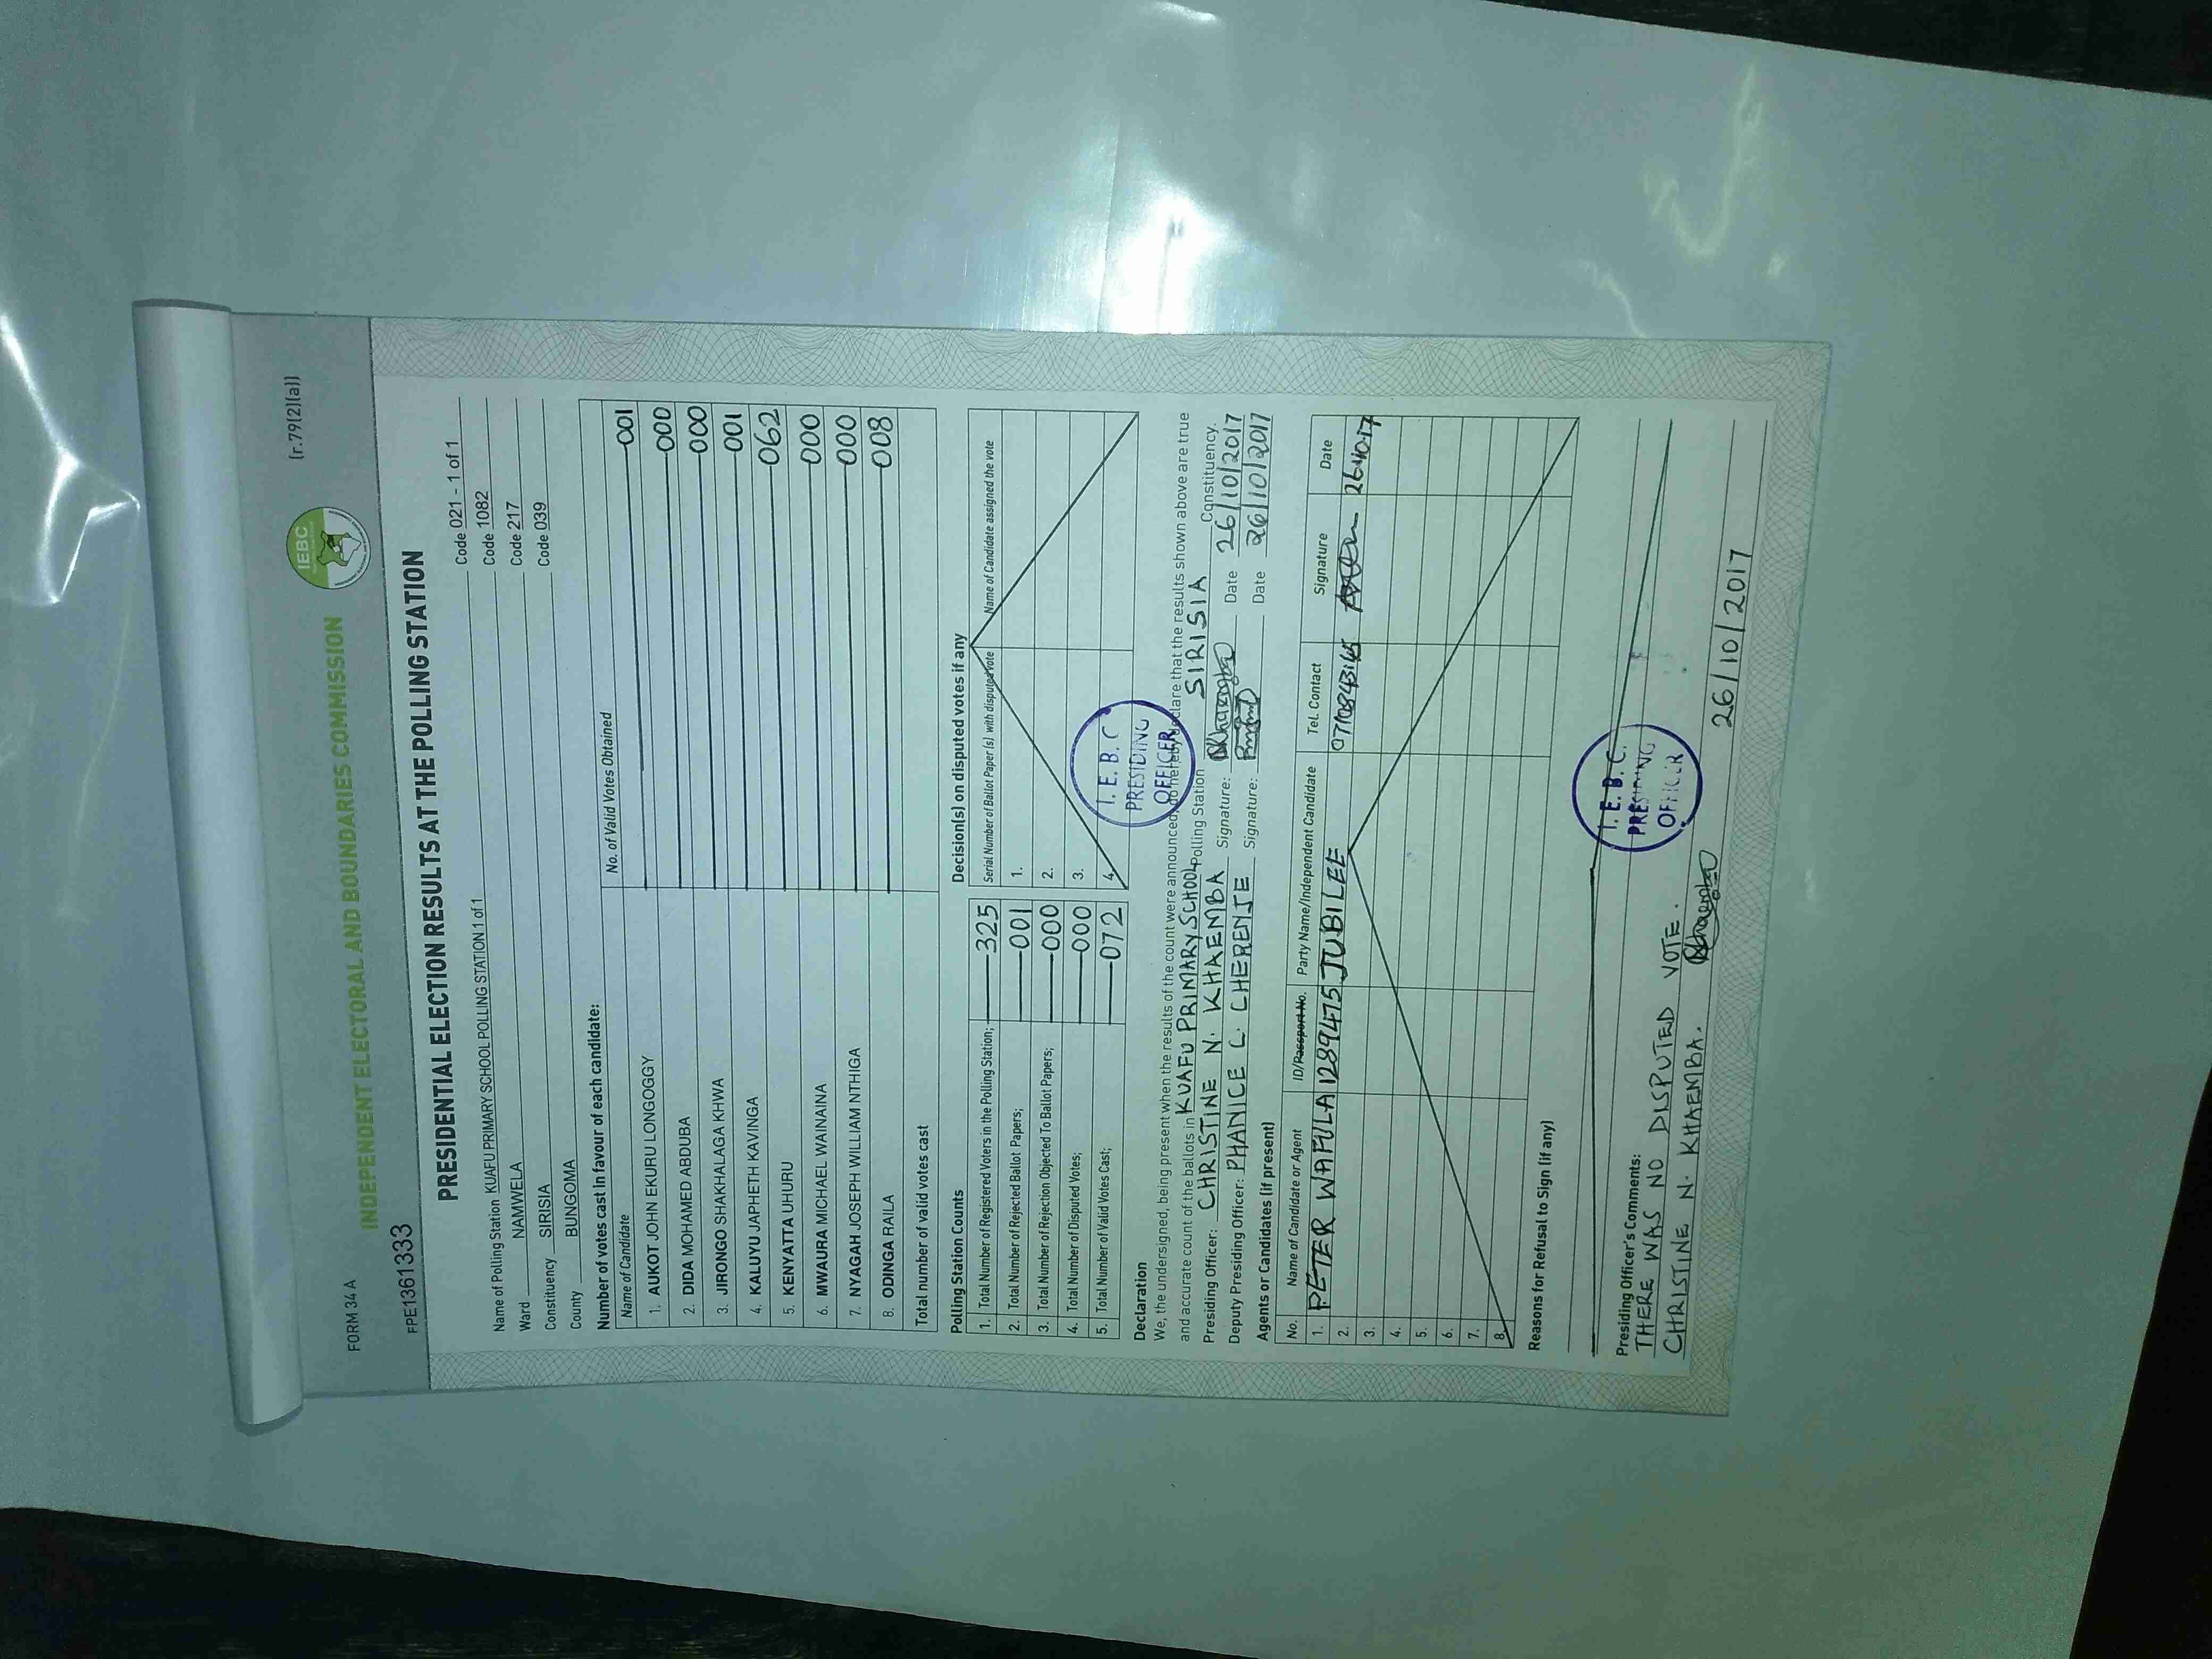 FORM 34 A
(r.79(2)(a))
IEBC
INDEPENDENT ELECTORAL AND BOUNDARIES COMMISSION
FPE1361333
PRESIDENTIAL ELECTION RESULTS AT THE POLLING STATION
Name of Polling Station KUAFU PRIMARY SCHOOL POLLING STATION 1 of 1 Code 021 - 1 of 1
Ward NAMWELA Code 1082
Constituency SIRISIA Code 217
County BUNGOMA Code 039
Number of votes cast in favour of each candidate:
Name of Candidate No. of Valid Votes Obtained
1. AUKOT JOHN EKURU LONGOGGY 001
2. DIDA MOHAMED ABDUBA 000
3. JIRONGO SHAKHALAGA KHWA 000
4. KALUYU JAPHETH KAVINGA 001
5. KENYATTA UHURU 062
6. MWAURA MICHAEL WAINAINA 000
7. NYAGAH JOSEPH WILLIAM NTHIGA 000
8. ODINGA RAILA 008
Total number of valid votes cast
Polling Station Counts
1. Total Number of Registered Voters in the Polling Station; 325
2. Total Number of Rejected Ballot Papers; 001
3. Total Number of Rejection Objected To Ballot Papers; 000
4. Total Number of Disputed Votes; 000
5. Total Number of Valid Votes Cast; 072
Decision(s) on disputed votes if any
Serial Number of Ballot Paper (s) with disputed vote Name of Candidate assigned the vote
1.
2.
3.
4.
I. E. B. C
PRESIDING
OFFICER
Declaration
We, the undersigned, being present when the results of the count were announced, do hereby declare that the results shown above are true
and accurate count of the ballots in KUAFU PRIMARY SCHOOL Polling Station SIRISIA Constituency.
Presiding Officer: CHRISTINE N. KHAEMBA Signature: Date 26/10/2017
Deputy Presiding Officer: PHANICE L. CHERENJE Signature: Date 26/10/2017
Agents or Candidates (if present)
No. Name of Candidate or Agent ID/Passport No. Party Name/Independent Candidate Tel. Contact Signature Date
1. PETER WAFULA 12894475 JUBILEE 26-10-17
2.
3.
4.
5.
6.
7.
8.
Reasons for Refusal to Sign (if any)
I. E. B. C.
PRESIDING
OFFICER
Presiding Officer's Comments:
THERE WAS NO DISPUTED VOTE.
CHRISTINE N. KHAEMBA. 26/10/2017